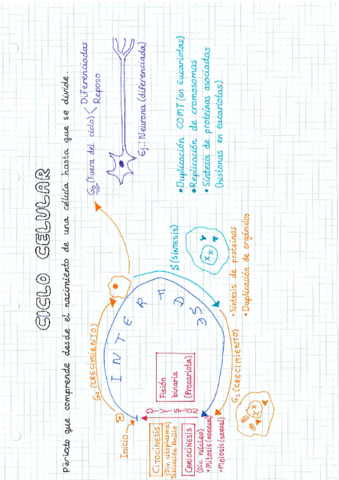 CICLO CELULAR
Período que comprende desde el nacimiento de una célula hasta que se divide.
G0 (Fuera del ciclo) < Diferenciadas
Reposo
Ej.: Neurona (diferenciada)
G1 (CRECIMIENTO)
Inicio
INTERFASE
S (SÍNTESIS)
• Duplicación COMT (en eucariotas)
• Replicación de cromosomas
• Síntesis de proteínas asociadas
(histonas en eucariotas)
• Síntesis de proteínas
• Duplicación de orgánulos
G2 (CRECIMIENTO)
Fisión
binaria
(Procariota)
DIVISIÓN
CITOCINESIS
(Div. citoplasma)
CARIOCINESIS
(Div. núcleo)
• Mitosis (asexual)
• Meiosis (sexual)